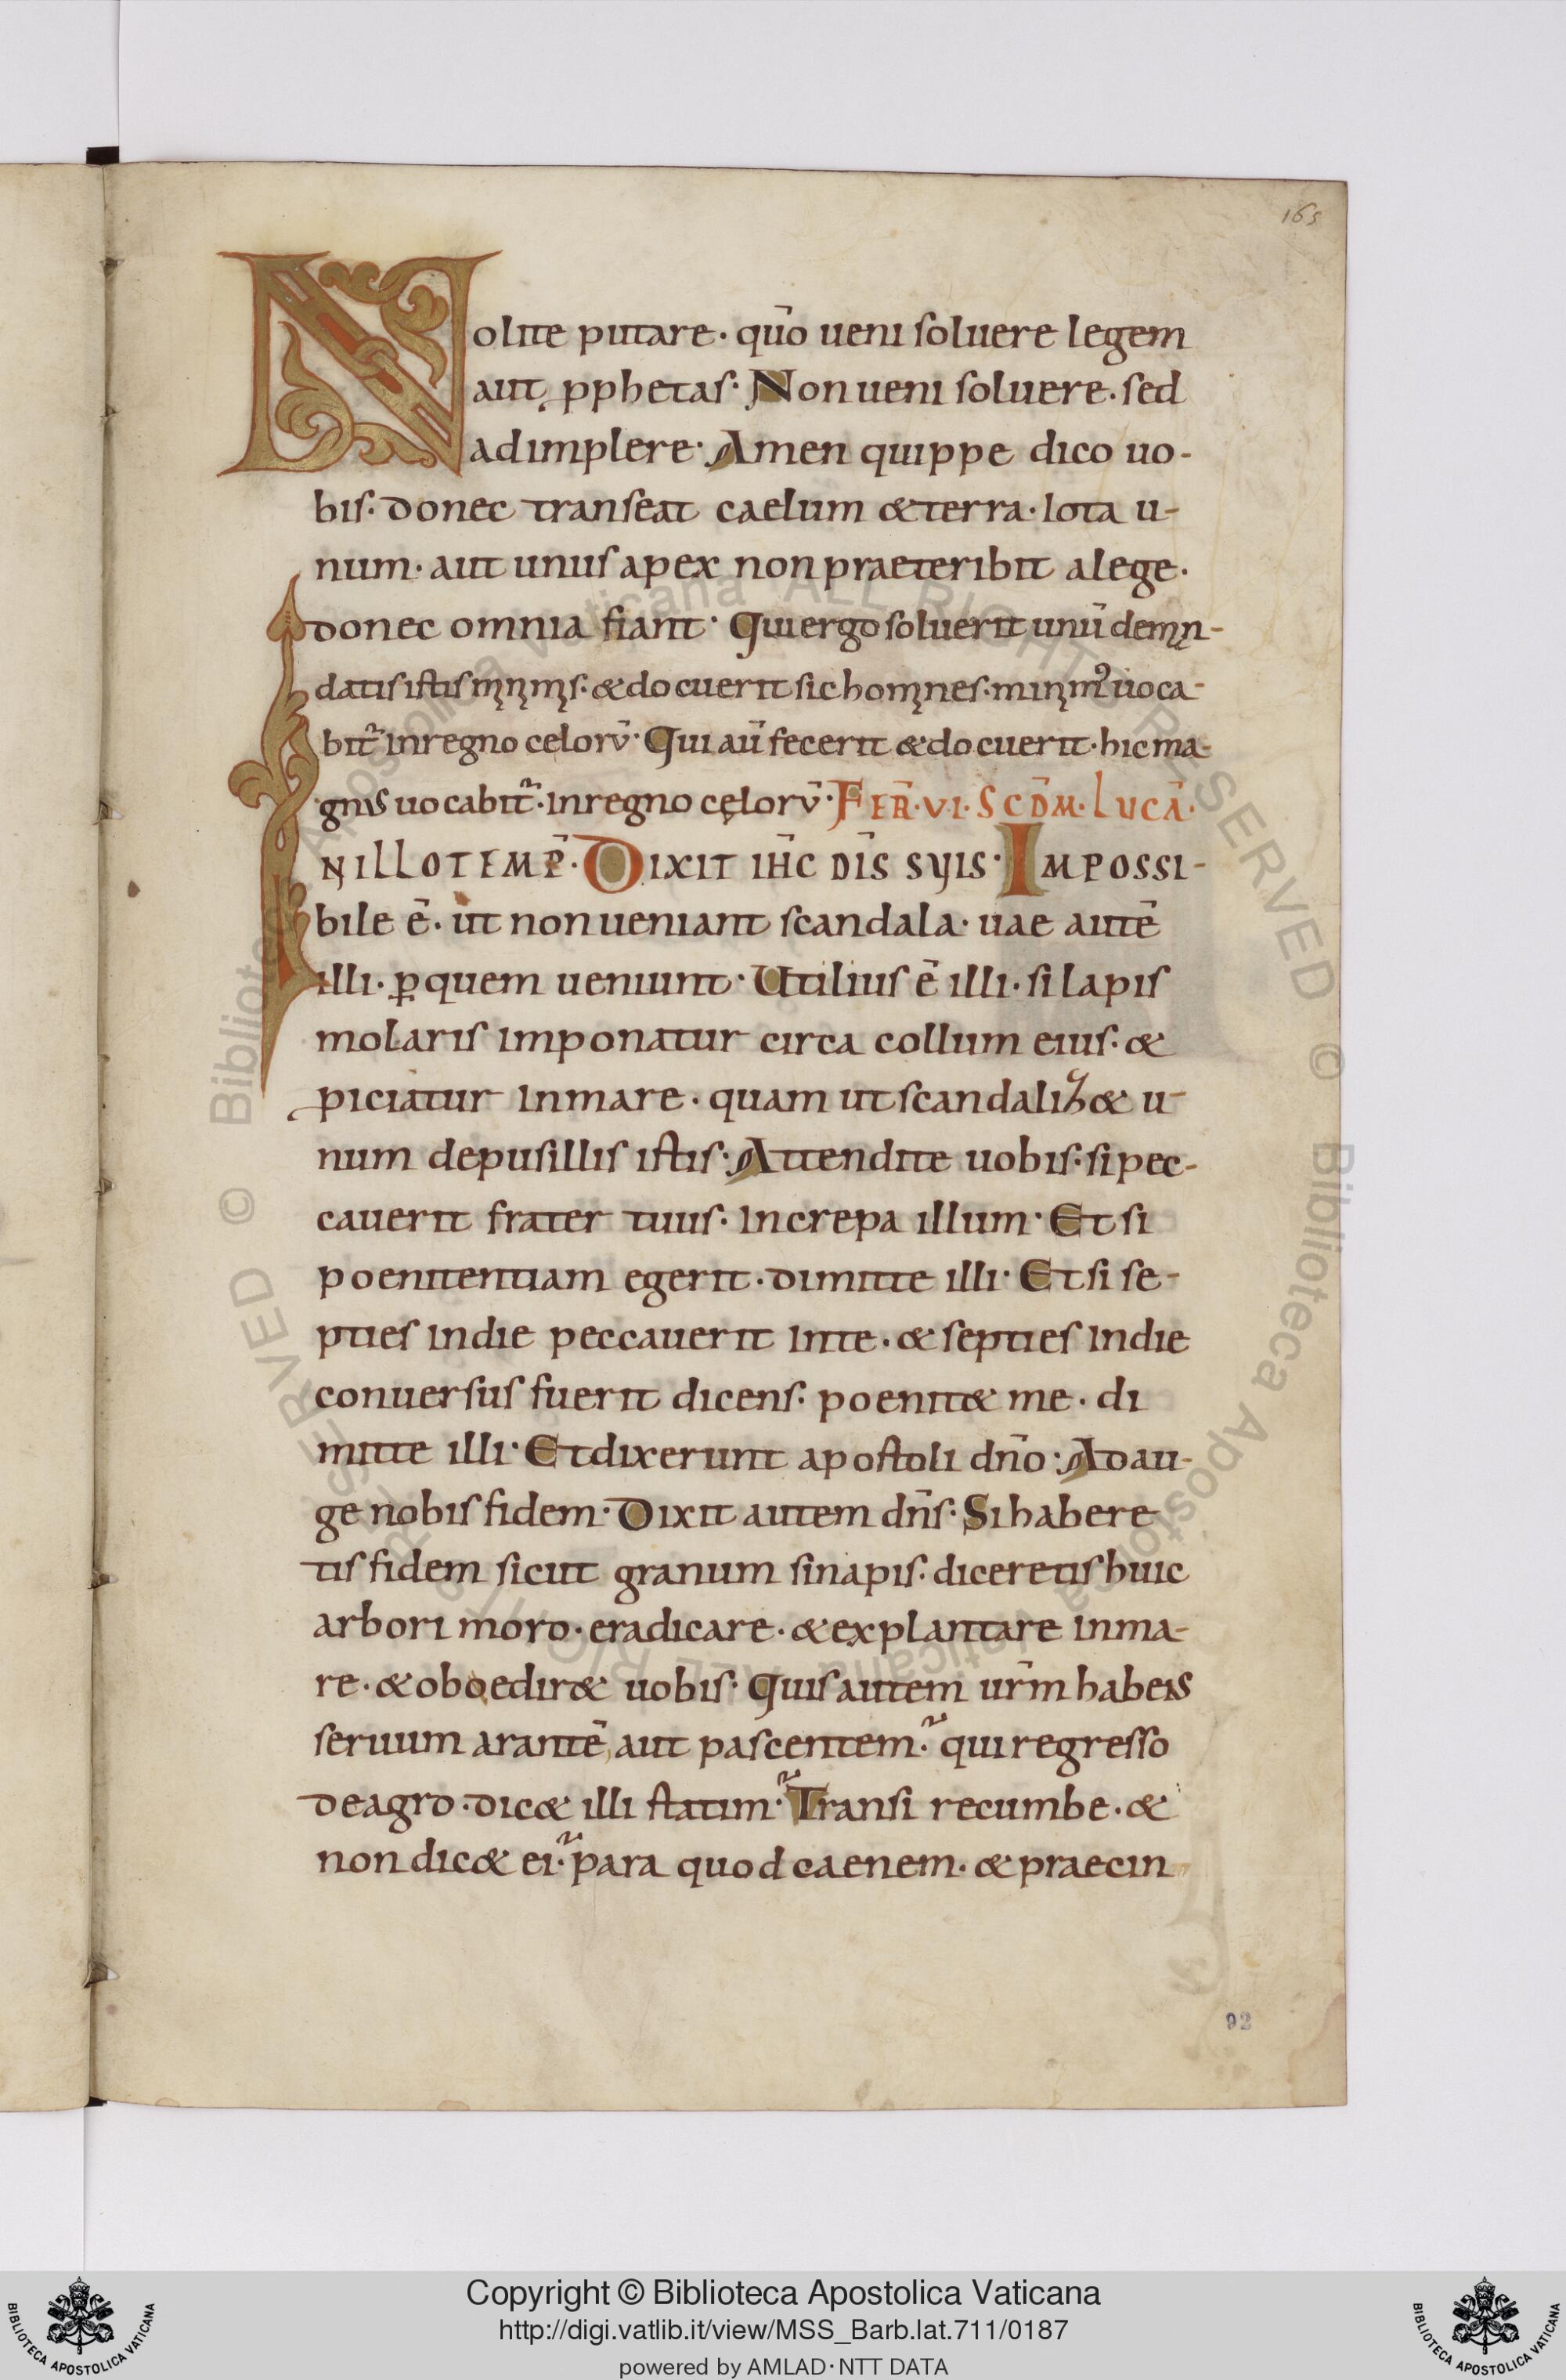 165
Nolite putare · qm̄o ueni soluere legem
aut pphetas · Non ueni soluere · sed
adimplere · Amen quippe dico uo-
bis · donec transeat caelum & terra · Iota u-
num · aut unus apex non praeteribit a lege ·
donec omnia fiant · Qui ergo soluerit unū de man-
datis istis minimis · & docuerit sic homines · minimꝰ uoca-
bit᷑ in regno celorū · Qui aū fecerit & docuerit · hic ma-
gnus uocabit᷑ · in regno cęlorū · FER̄ · VI · SCD̄M · LUCĀ ·
IN ILLO TEMP̄ · DIXIT IH̄C DIS̄ SUIS · IMPOSSI-
bile ē · ut non ueniant scandala · uae autē
illi · ꝑ quem ueniunt · Utilius ē illi · si lapis
molaris imponatur circa collum eius · &
ꝓiciatur in mare · quam ut scandaliz& u-
num de pusillis istis · Attendite uobis · si pec-
cauerit frater tuus · increpa illum · Et si
poenitentiam egerit · dimitte illi · Et si se-
pties in die peccauerit in te · & septies in die
conuersus fuerit dicens · poenit& me · di
mitte illi · Et dixerunt apostoli dn̄o · Adau-
ge nobis fidem · Dixit autem dn̄s · Si habere
tis fidem sicut granum sinapis · diceretis huic
arbori moro · eradicare · & explantare in ma-
re · & oboedir& uobis · Quis autem ur̄m habens
seruum arantē aut pascentem · qui regresso
de agro · dic& illi statim · Transi recumbe · &
non dic& ei · para quod caenem · & praecin
92
© Biblioteca Apostolica Vaticana ALL RIGHTS RESERVED © Biblioteca Apostolica Vaticana ALL RIGHTS RESERVED
Copyright © Biblioteca Apostolica Vaticana
http://digi.vatlib.it/view/MSS_Barb.lat.711/0187
powered by AMLAD·NTT DATA
BIBLIOTECA APOSTOLICA VATICANA
BIBLIOTECA APOSTOLICA VATICANA